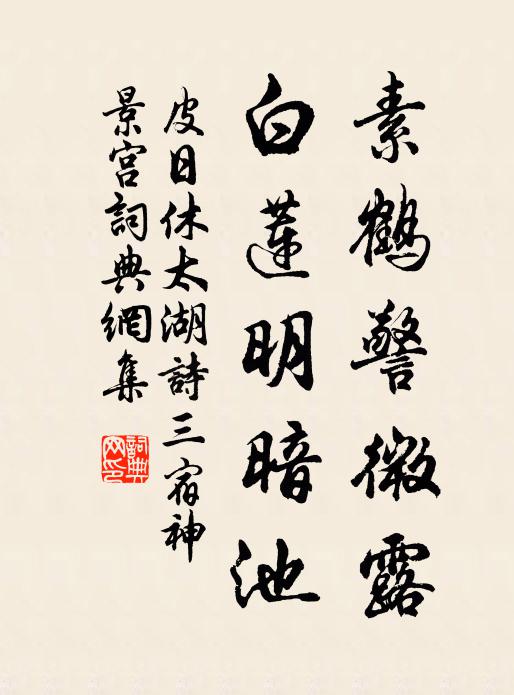 素鶴警微露
白蓮明暗池
皮日休太湖詩三宿神
景宫詞典網集
詞典
网印